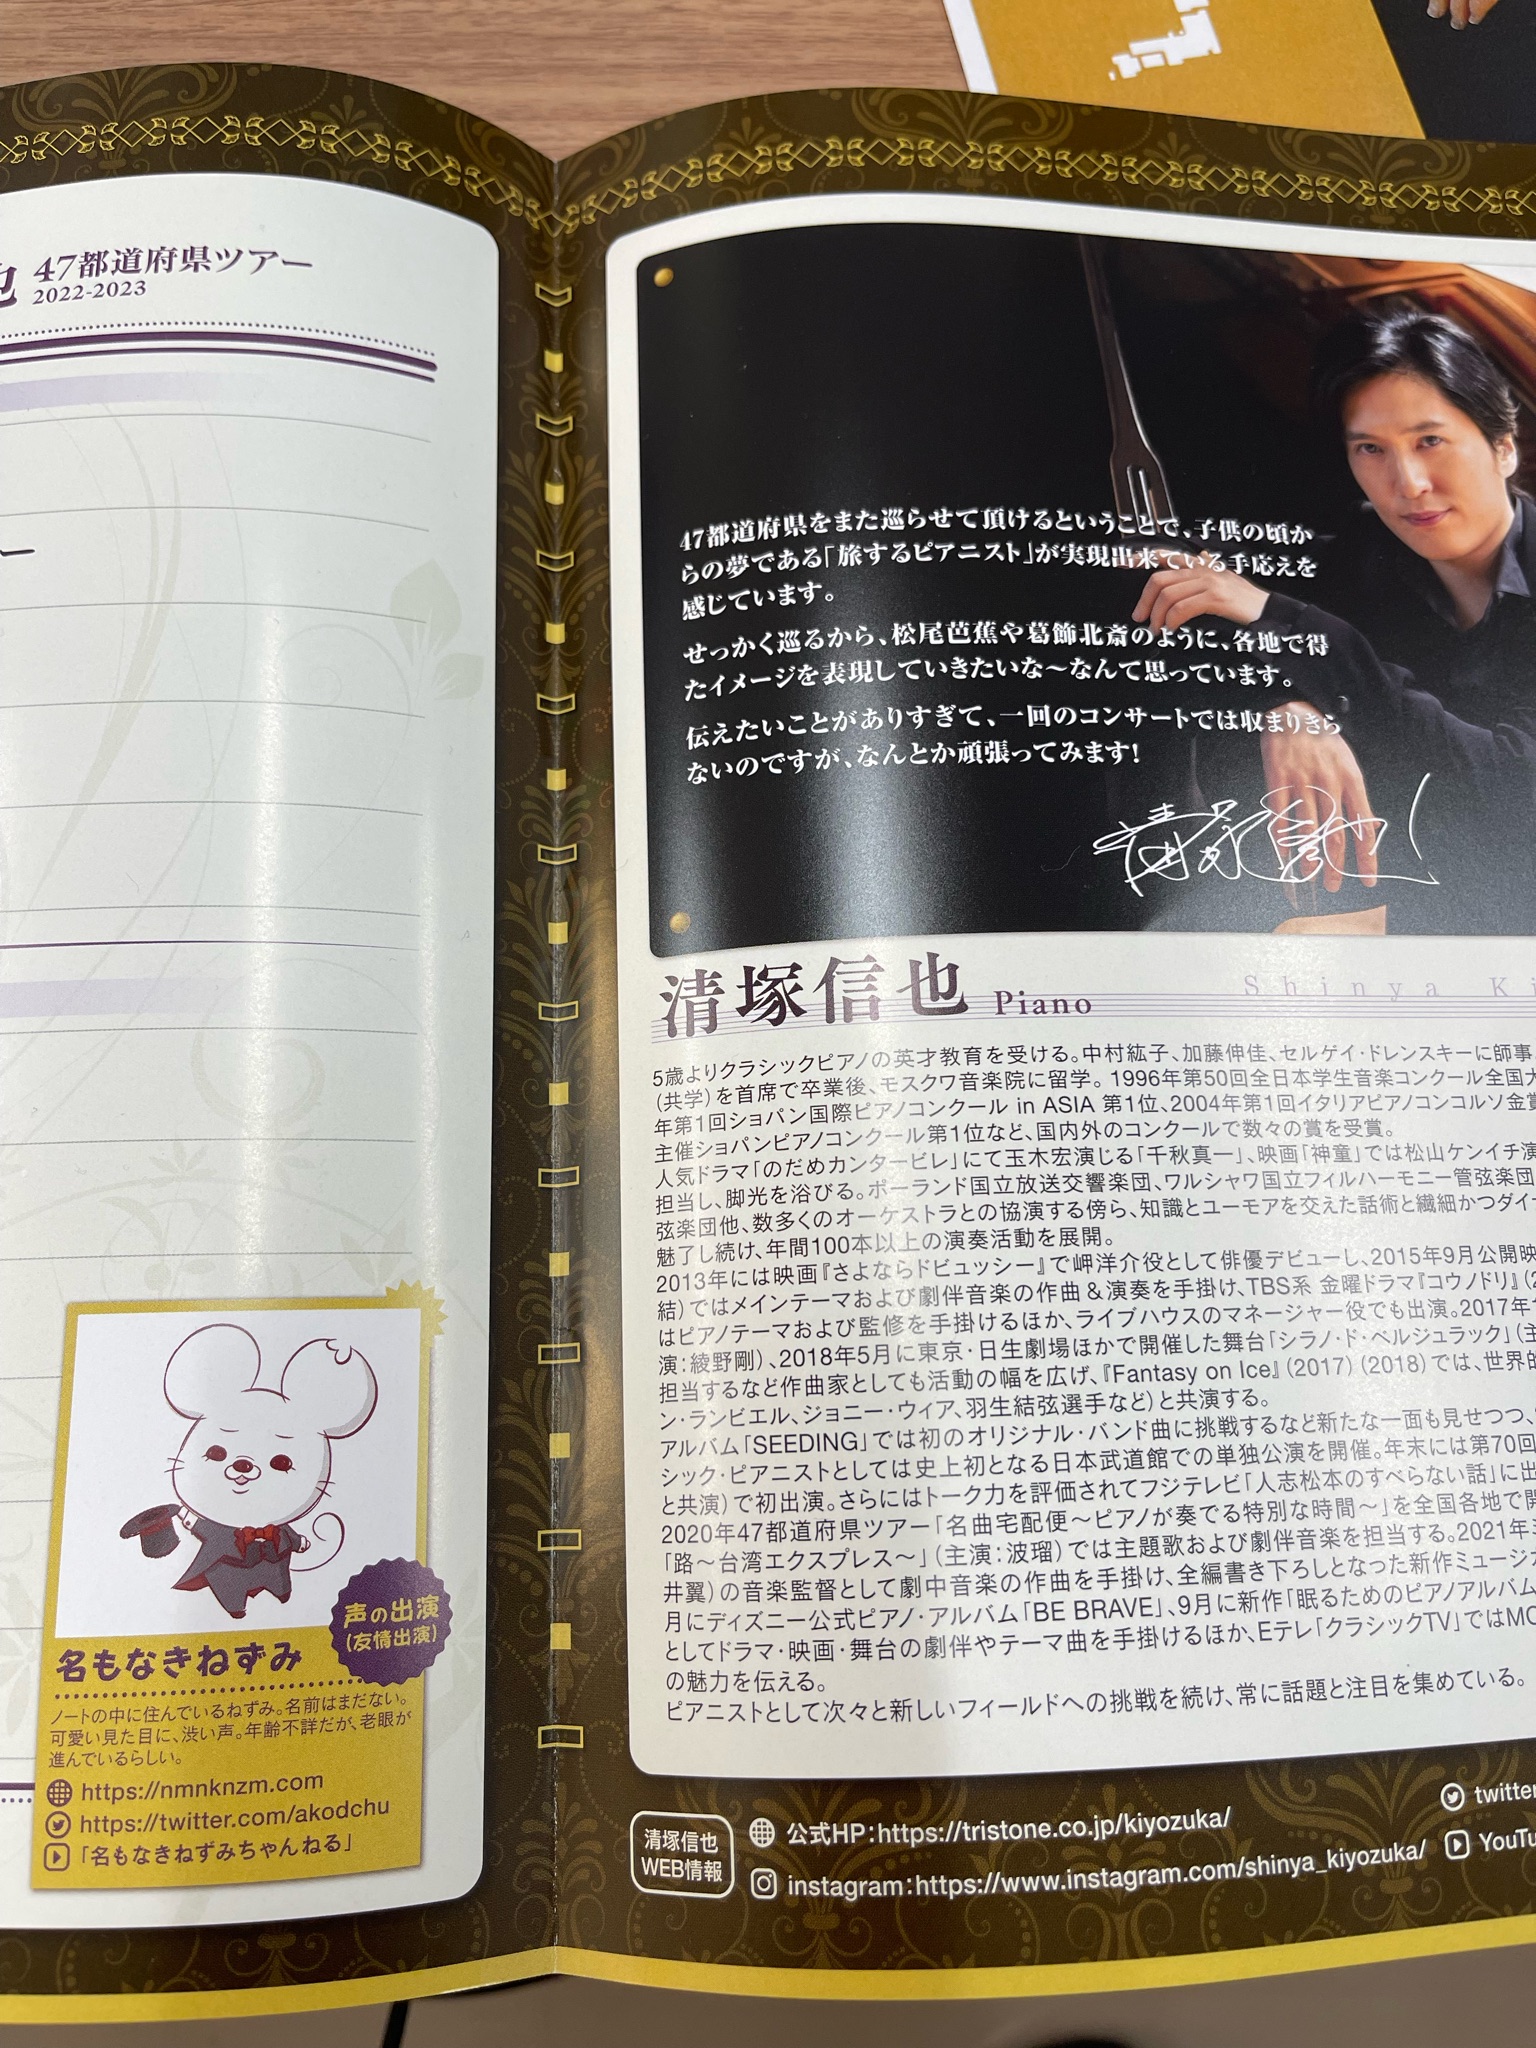 也 47都道府県ツアー
2022-2023
ー
声の出演
(友情出演)
名もなきねずみ
ノートの中に住んでいるねずみ。名前はまだない。
可愛い見た目に、渋い声。年齢不詳だが、老眼が
進んでいるらしい。
https://nmnknzm.com
https://twitter.com/akodchu
「名もなきねずみちゃんねる」
47都道府県をまた巡らせて頂けるということで、子供の頃か
らの夢である「旅するピアニスト」が実現出来ている手応えを
感じています。
せっかく巡るから、松尾芭蕉や葛飾北斎のように、各地で得
たイメージを表現していきたいな～なんて思っています。
伝えたいことがありすぎて、一回のコンサートでは収まりきら
ないのですが、なんとか頑張ってみます!
清塚信也
清塚信也 Piano Shinya Ki
5歳よりクラシックピアノの英才教育を受ける。中村紘子、加藤伸佳、セルゲイ・ドレンスキーに師事
(共学)を首席で卒業後、モスクワ音楽院に留学。1996年第50回全日本学生音楽コンクール全国大
年第1回ショパン国際ピアノコンクール in ASIA 第1位、2004年第1回イタリアピアノコンコルソ金賞
主催ショパンピアノコンクール第1位など、国内外のコンクールで数々の賞を受賞。
人気ドラマ「のだめカンタービレ」にて玉木宏演じる「千秋真一」、映画「神童」では松山ケンイチ演
担当し、脚光を浴びる。ポーランド国立放送交響楽団、ワルシャワ国立フィルハーモニー管弦楽団
弦楽団他、数多くのオーケストラとの協演する傍ら、知識とユーモアを交えた話術と繊細かつダイ
魅了し続け、年間100本以上の演奏活動を展開。
2013年には映画『さよならドビュッシー』で岬洋介役として俳優デビューし、2015年9月公開映
結)ではメインテーマおよび劇伴音楽の作曲&演奏を手掛け、TBS系 金曜ドラマ『コウノドリ』(2
はピアノテーマおよび監修を手掛けるほか、ライブハウスのマネージャー役でも出演。2017年
演:綾野剛)、2018年5月に東京・日生劇場ほかで開催した舞台「シラノ・ド・ベルジュラック」(主
担当するなど作曲家としても活動の幅を広げ、『Fantasy on Ice』(2017)(2018)では、世界的
ン・ランビエル、ジョニー・ウィア、羽生結弦選手など)と共演する。
アルバム「SEEDING」では初のオリジナル・バンド曲に挑戦するなど新たな一面も見せつつ、
シック・ピアニストとしては史上初となる日本武道館での単独公演を開催。年末には第70回
と共演)で初出演。さらにはトーク力を評価されてフジテレビ「人志松本のすべらない話」に出
2020年47都道府県ツアー「名曲宅配便～ピアノが奏でる特別な時間～」を全国各地で開
「路～台湾エクスプレス～」(主演:波瑠)では主題歌および劇伴音楽を担当する。2021年
井翼)の音楽監督として劇中音楽の作曲を手掛け、全編書き下ろしとなった新作ミュージ
月にディズニー公式ピアノ・アルバム「BE BRAVE」、9月に新作「眠るためのピアノアルバム
としてドラマ・映画・舞台の劇伴やテーマ曲を手掛けるほか、Eテレ「クラシックTV」ではMC
の魅力を伝える。
ピアニストとして次々と新しいフィールドへの挑戦を続け、常に話題と注目を集めている。
清塚信也
WEB情報
公式HP:https://tristone.co.jp/kiyozuka/
instagram:https://www.instagram.com/shinya_kiyozuka/
twitter
YouTu